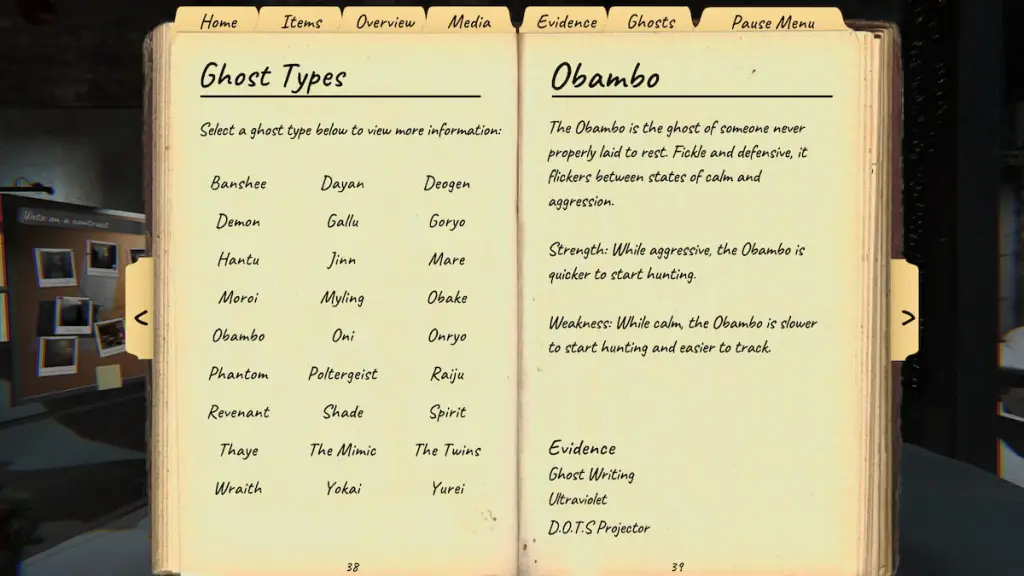 Home Items Overview Media Evidence Ghosts Pause Menu
Ghost Types
Select a ghost type below to view more information:
Banshee Dayan Deogen
Demon Gallu Goryo
Hantu Jinn Mare
Moroi Myling Obake
Obambo Oni Onryo
Phantom Poltergeist Raiju
Revenant Shade Spirit
Thaye The Mimic The Twins
Wraith Yokai Yurei
38
Obambo
The Obambo is the ghost of someone never
properly laid to rest. Fickle and defensive, it
flickers between states of calm and
aggression.
Strength: While aggressive, the Obambo is
quicker to start hunting.
Weakness: While calm, the Obambo is slower
to start hunting and easier to track.
Evidence
Ghost Writing
Ultraviolet
D.O.T.S Projector
39
<
>